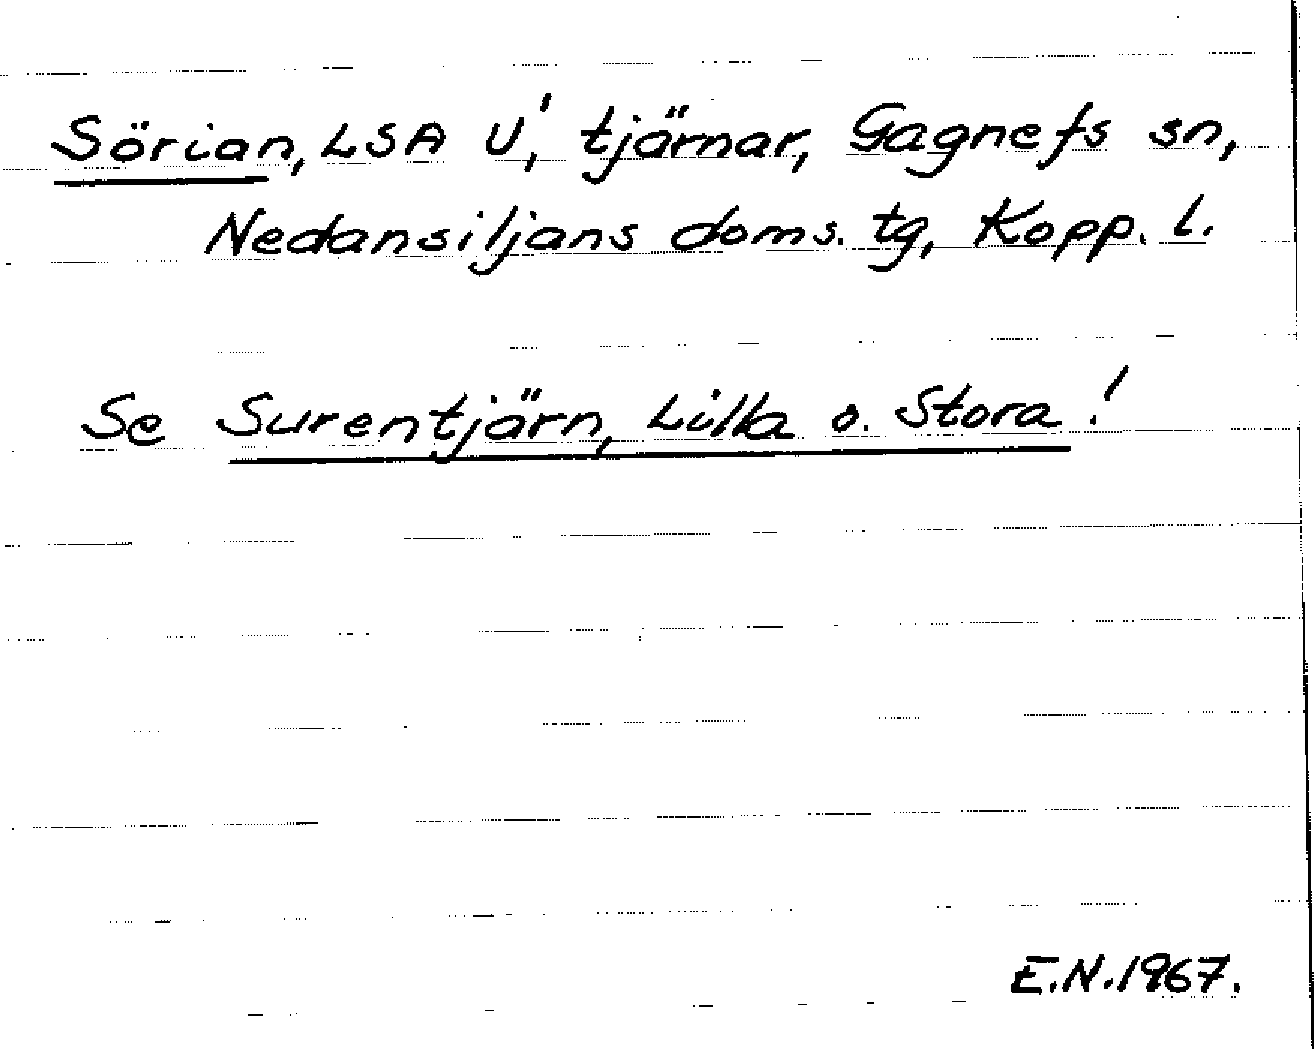 Sörian, LSA U', tjärnar, Gagnefs sn,
Nedansiljans doms. tg, Kopp. l.
Se Surentjärn, Lilla o. Stora!
E.N.1967.